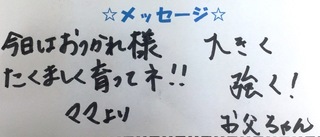 ☆メッセージ☆
今日はおつかれ様
たくましく育ってネ!!
ママより
大きく
強く!
お父ちゃん